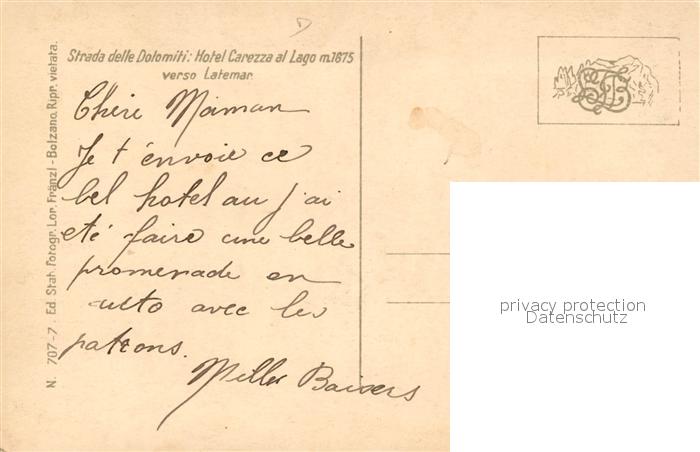 Strada delle Dolomiti: Hotel Carezza al Lago m.1675
verso Latemar
Chère Maman
Je t'envoie ce
bel hotel au j'ai
eté faire une belle
promenade en
auto avec les
patrons.
Milles Baisers
N. 707-7. Ed. Stab. Fotogr. Lor. Fränzl - Bolzano. Ripr. vietata.
privacy protection
Datenschutz